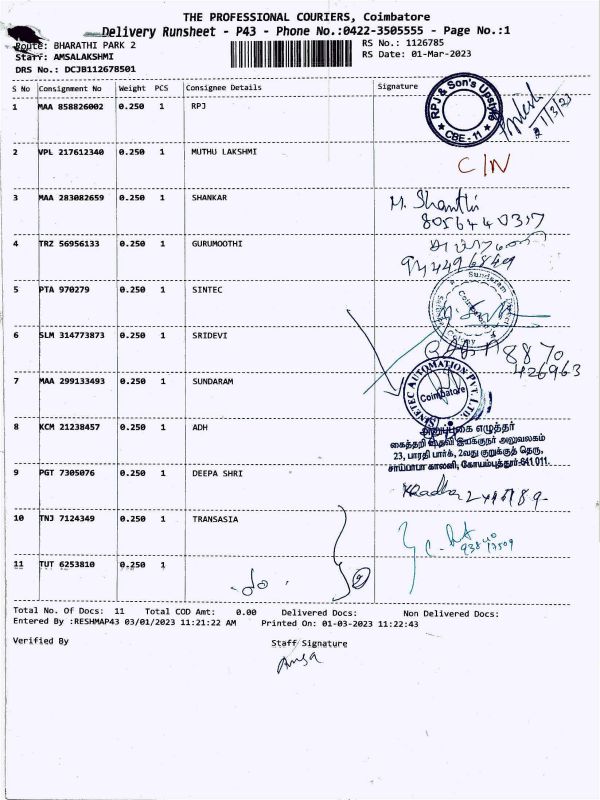 THE PROFESSIONAL COURIERS, Coimbatore
Delivery Runsheet - P43 - Phone No.:0422-3505555 - Page No.:1
Route: BHARATHI PARK 2
RS No.: 1126785
Staff: AMSALAKSHMI
RS Date: 01-Mar-2023
DRS No.: DCJB112678501
S No Consignment No Weight PCS Consignee Details Signature
1 MAA 858826002 0.250 1 RPJ
RPJ & Son's Upstyle
CBE - 11
1/3/23
2 VPL 217612340 0.250 1 MUTHU LAKSHMI
C/N
3 MAA 283082659 0.250 1 SHANKAR
M. Shanthi
8056440317
4 TRZ 56956133 0.250 1 GURUMOOTHI
9444296849
5 PTA 970279 0.250 1 SINTEC
Sundaram
Coimbatore
Colony
6 SLM 314773873 0.250 1 SRIDEVI
8870
426963
7 MAA 299133493 0.250 1 SUNDARAM
SINETEC AUTOMATION PVT. LTD.
Coimbatore
8 KCM 21238457 0.250 1 ADH
அனுப்புகை எழுத்தர்
கைத்தறி உதவி இயக்குநர் அலுவலகம்
23, பாரதி பார்க், 2வது குறுக்குத் தெரு,
சாய்பாபா காலனி, கோயம்புத்தூர்-641 011.
9 PGT 7305076 0.250 1 DEEPA SHRI
10 TNJ 7124349 0.250 1 TRANSASIA
11 TUT 6253810 0.250 1
Total No. Of Docs: 11 Total COD Amt: 0.00 Delivered Docs: Non Delivered Docs:
Entered By :RESHMAP43 03/01/2023 11:21:22 AM Printed On: 01-03-2023 11:22:43
Verified By Staff Signature
Amsa